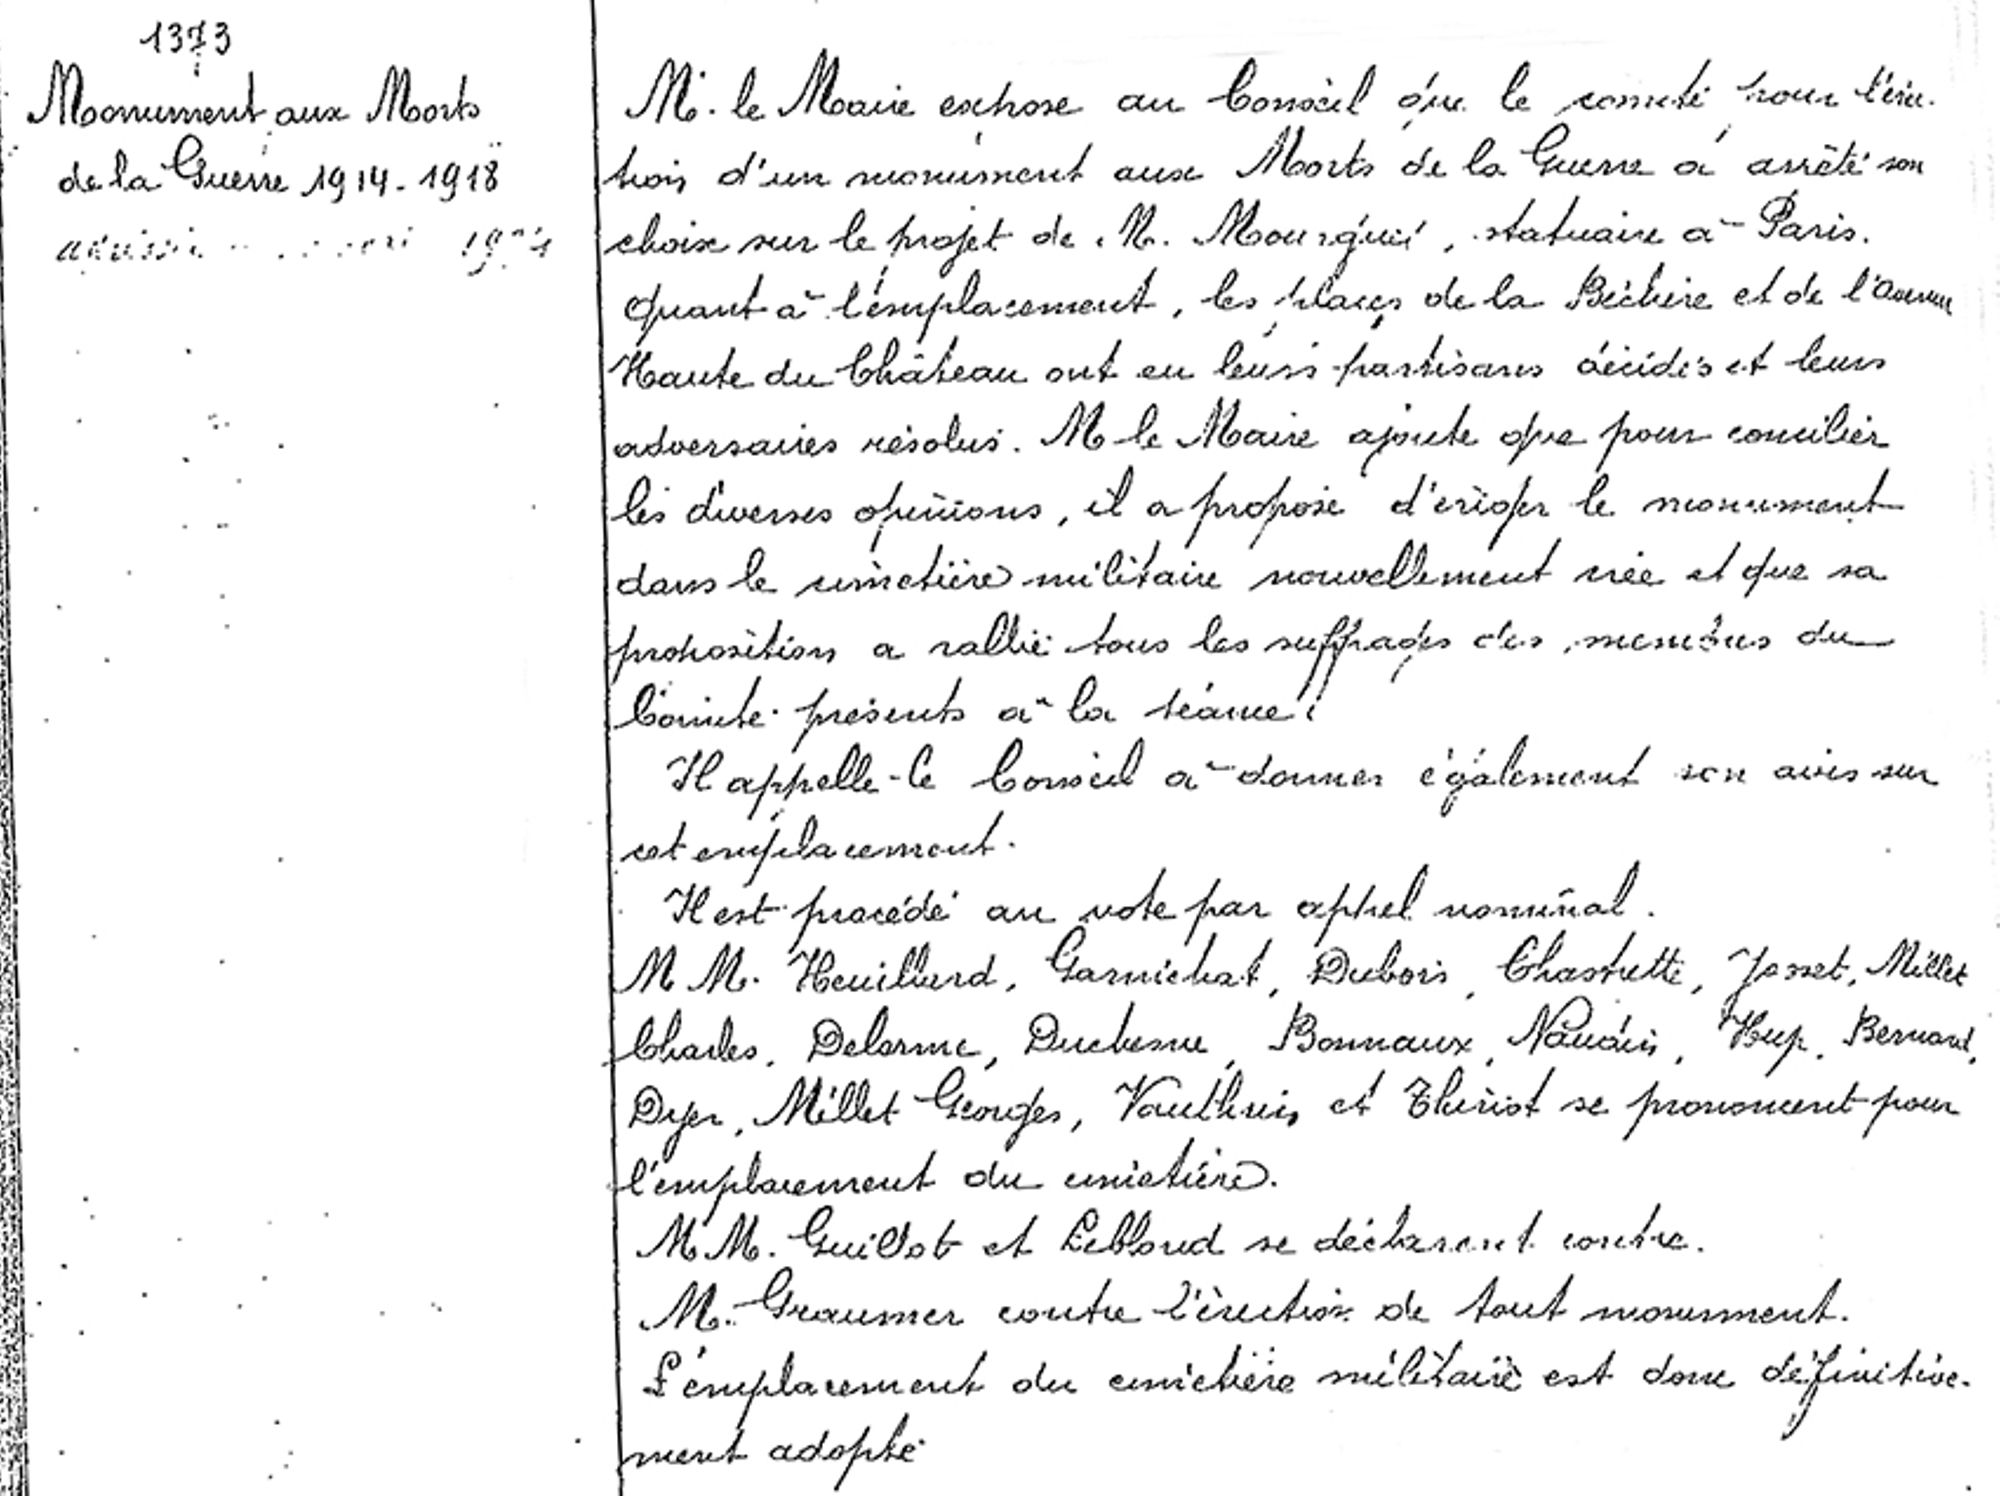 1373
Monument aux Morts
de la Guerre 1914-1918
M. le Maire expose au Conseil que le comité pour l'érec-
tion d'un monument aux Morts de la Guerre a arrêté son
choix sur le projet de M. Mourgues, statuaire à Paris.
Quant à l'emplacement, les places de la Béchère et de l'Avenue
Haute du Château ont eu leurs partisans décidés et leurs
adversaires résolus. M le Maire ajoute que pour concilier
les diverses opinions, il a proposé d'ériger le monument
dans le cimetière militaire nouvellement créé et que sa
proposition a rallié tous les suffrages des membres du
Comité présents à la séance.
Il appelle le Conseil à donner également son avis sur
cet emplacement.
Il est procédé au vote par appel nominal.
M M. Heuillard, Garnichat, Dubois, Chastrette, Josset, Millet
Charles, Delorme, Duchesne, Bonnaux, Naudin, Hup, Bernard,
Dyer, Millet Georges, Vauthrin et Thiriot se prononcent pour
l'emplacement du cimetière.
M M. Guillot et Leblond se déclarent contre.
M. Graumer contre l'érection de tout monument.
L'emplacement du cimetière militaire est donc définitive-
ment adopté